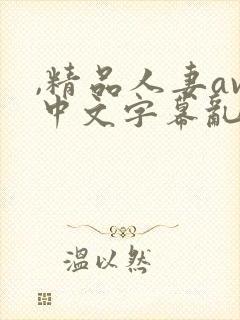 ,精品人妻av
中文字幕亂
温以然